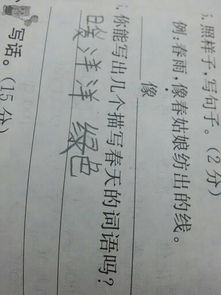 1. 照样子,写句子。(2分)
例:春雨,像春姑娘纺出的线。
像
你能写出几个描写春天的词语吗?
暖洋洋 绿色
写话。(15分)